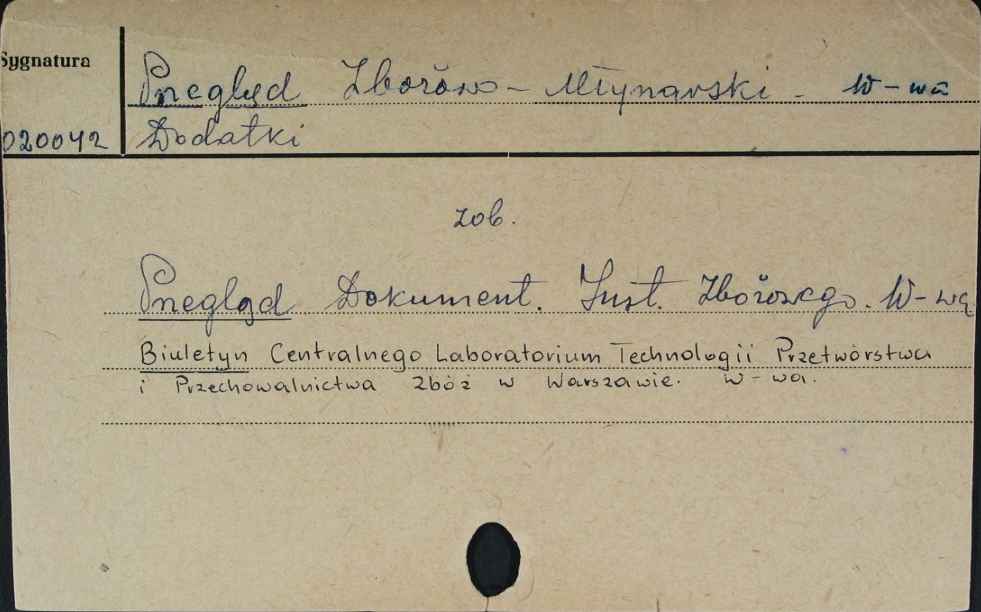 Sygnatura
Przegląd Zbożowo - Młynarski - W-wa
020042 Dodatki
zob.
Przegląd Dokument. Inst. Zbożowego. W-wa
Biuletyn Centralnego Laboratorium Technologii Przetwórstwa
i Przechowalnictwa Zbóż w Warszawie. W-wa.